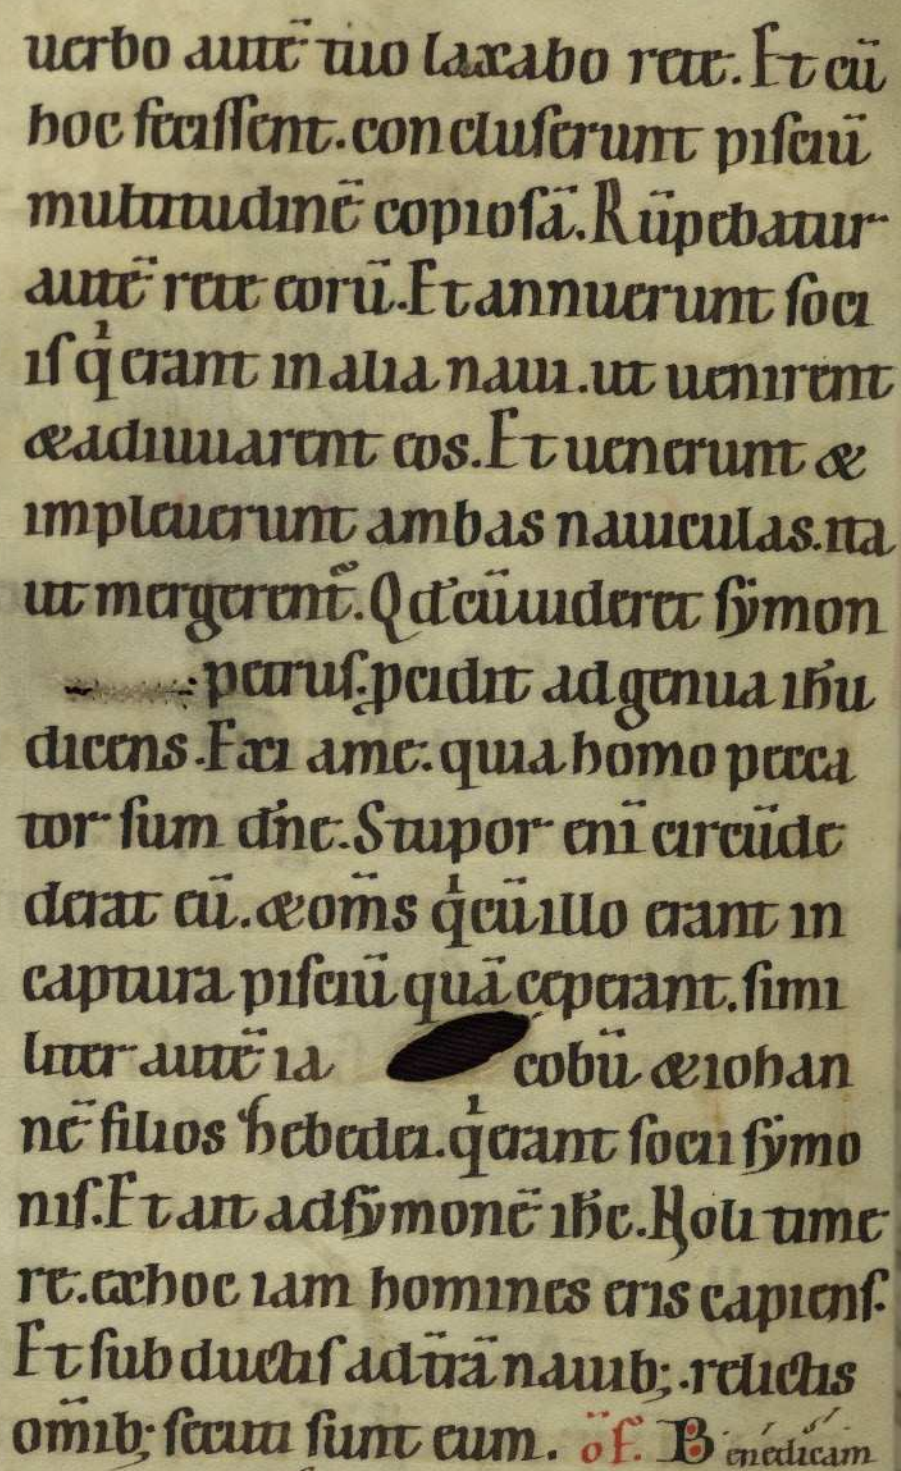 uerbo autē tuo laxabo rete. Et cū
hoc fecissent. concluserunt pisciū
multitudinē copiosā. Rūpebatur
autē rete eorū. Et annuerunt soci
is qͥ erant in alia naui. ut uenirent
& adiuuarent eos. Et uenerunt &
impleuerunt ambas nauiculas. ita
ut mergerent᷑. Qd̄ cū uideret sẏmon
petrus. ꝓcidit ad genua ihu̅
dicens. Exi a me. quia homo pecca
tor sum dn̄e. Stupor enī circūde
derat eū. & om̄s qͥ cū illo erant in
captura pisciū quā ceperant. simi
liter autē ia cobū & iohan
nē filios hebedei. qͥ erant socii sẏmo
nis. Et ait ad sẏmonē ihc̅. Noli time
re. ex hoc iam homines eris capiens.
Et subductis ad tr̄ā nauib; . relictis
om̄ib; secuti sunt eum. of̄. Benedicam